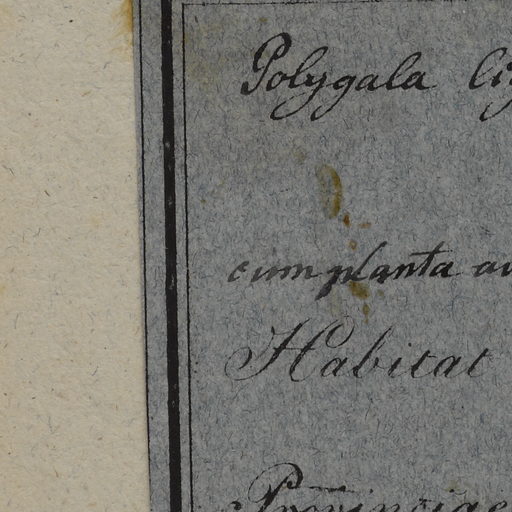 Polygala lig
cum planta au
Habitat
Provinciae